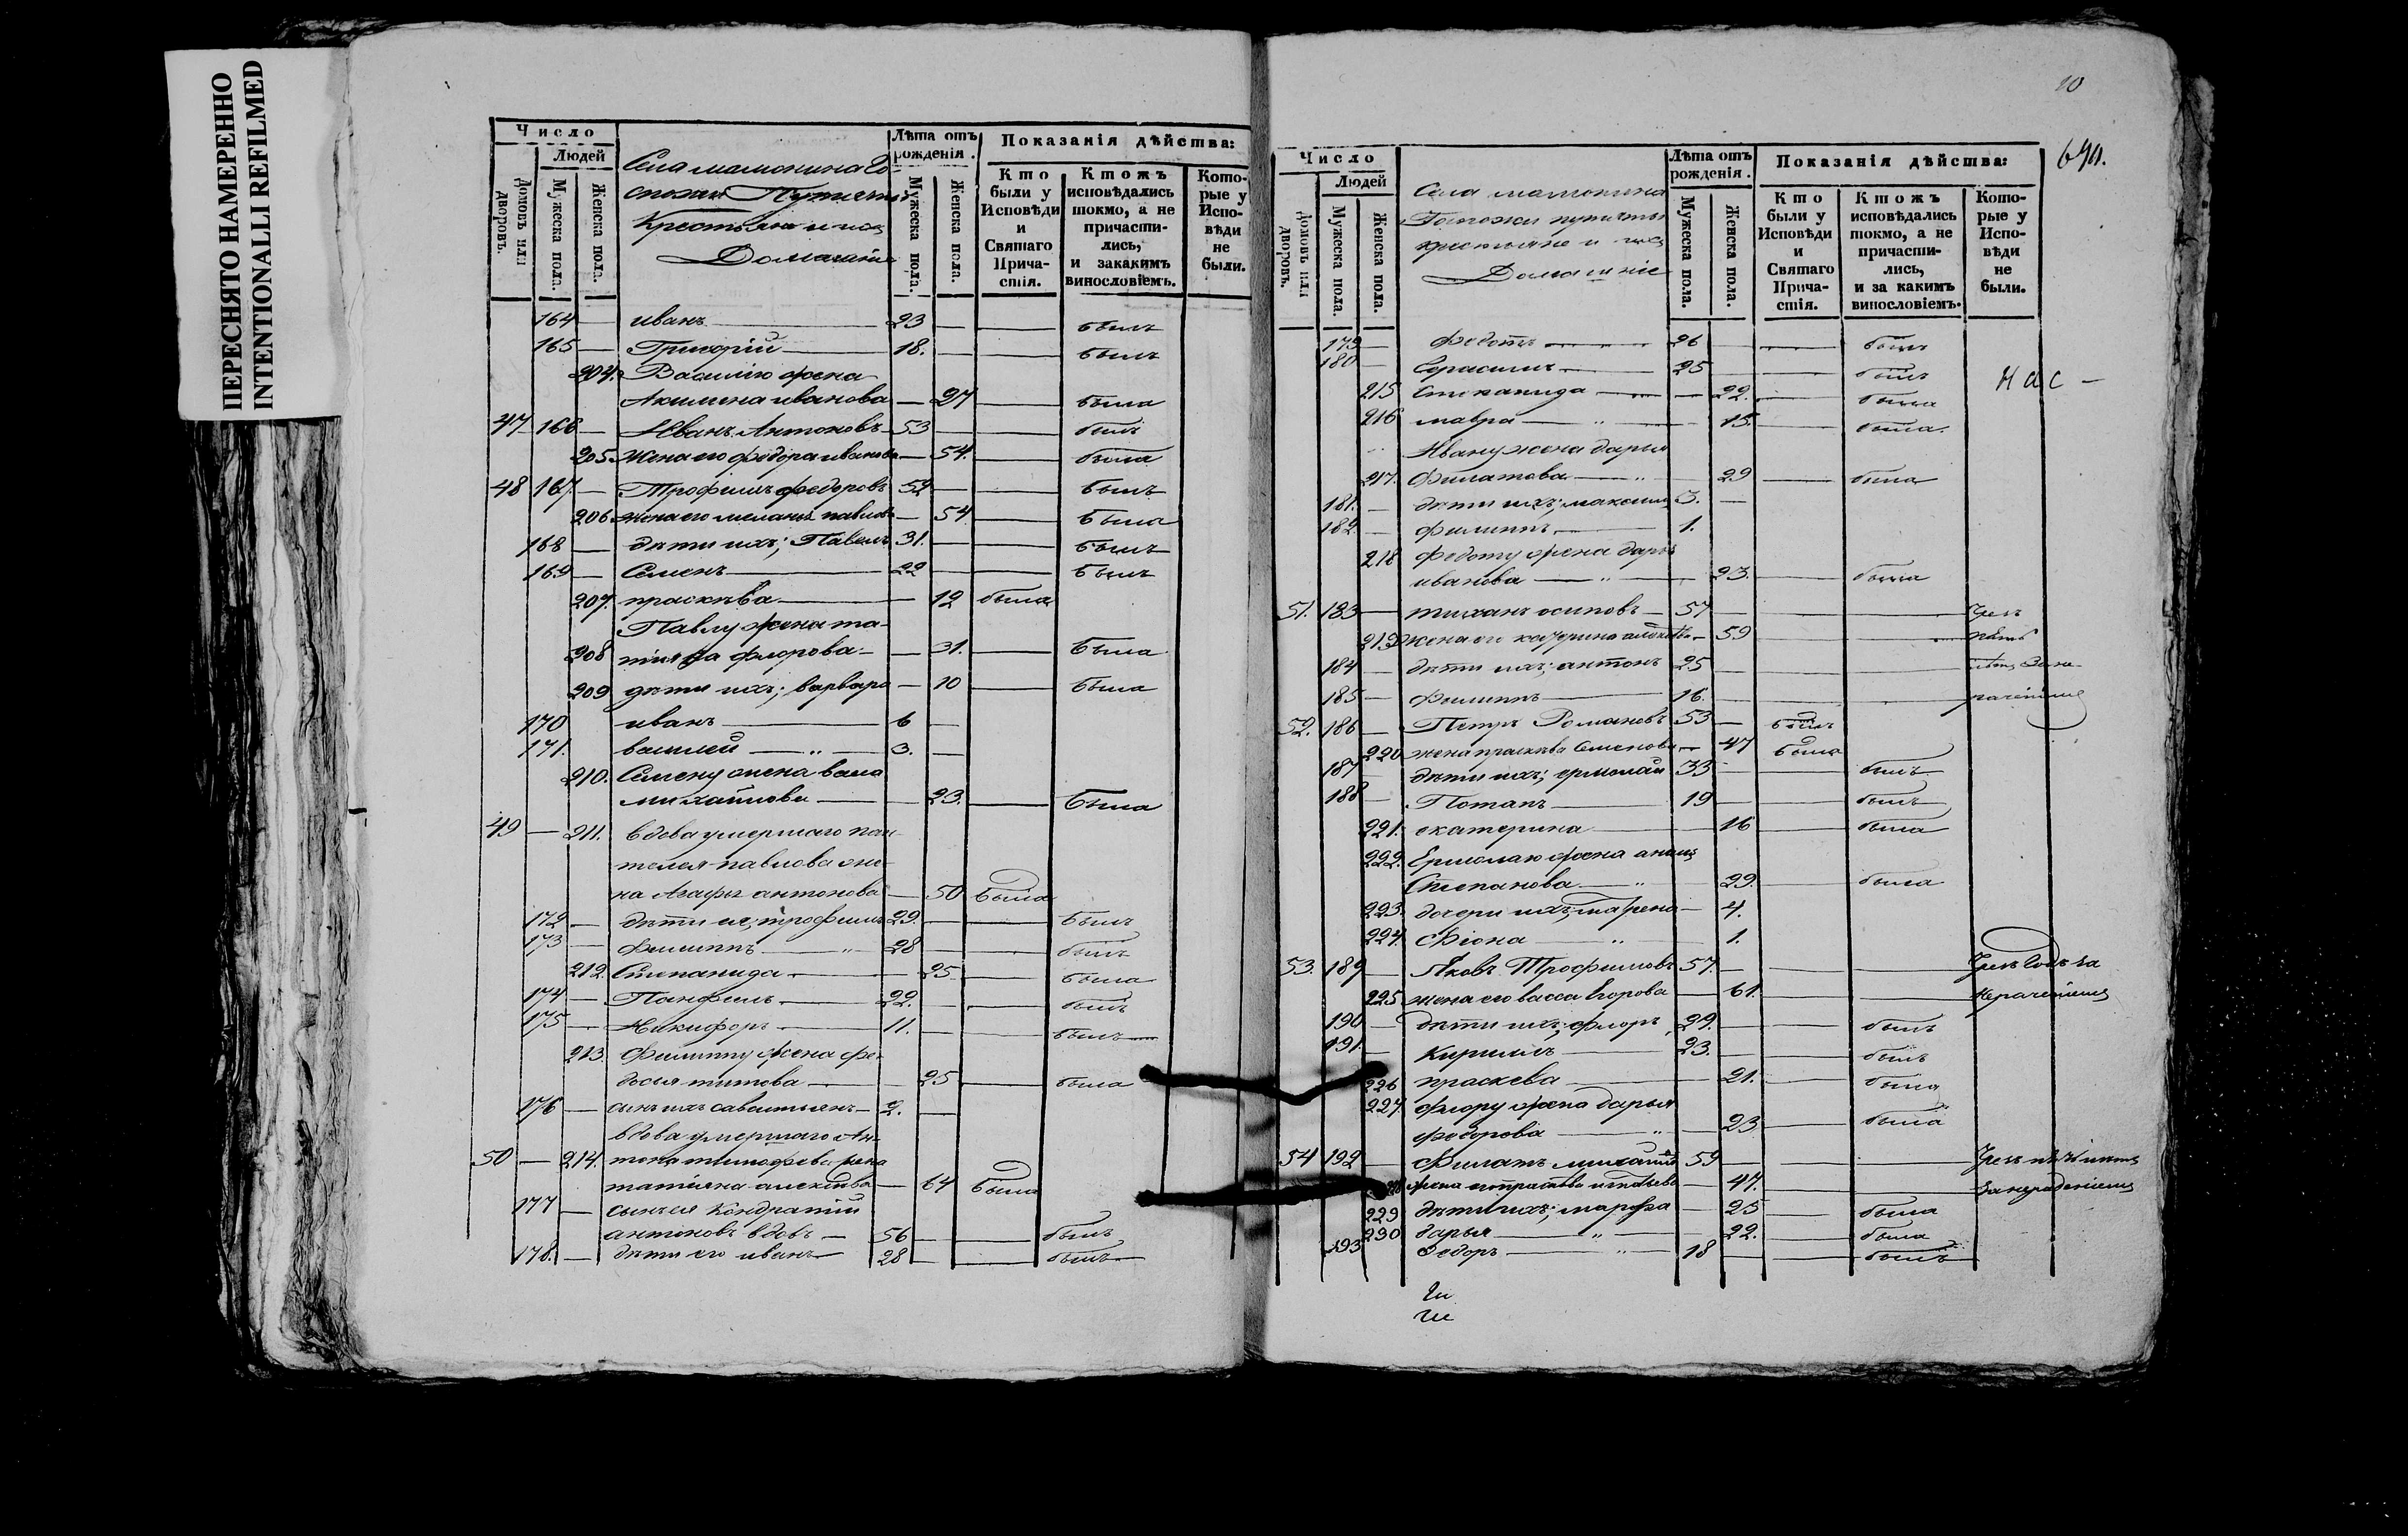 ПЕРЕСНЯТО НАМЕРЕННО
INTENTIONALLI REFILMED
Число
Людей
Домовъ или дворовъ.
Мужеска пола.
Женска пола.
Села мамонина Го-
спожи Путяты
Крестьяне и ихъ
Домашніе
Лѣта отъ рожденія.
Мужеска пола.
Женска пола.
Показанія дѣйства:
Кто были у Исповѣди и Святаго Прича-стія.
Ктожъ исповѣдались токмо, а не причасти-лись, и закакимъ винословіемъ.
Кото-рые у Испо-вѣди не были.
164 — иванъ — 23 — — былъ
165 — Григорій — 18. — — былъ
204. Василію жена
Акилина иванова — 27 — была
47 166 — Иванъ Антоновъ 53 — — былъ
205. жена его федора иванова — 54. — была
48 167. — Трофимъ федоровъ 52 — — былъ
206 жена его меланья павлова — 54 — была
168 — дѣти ихъ; Павелъ 31. — — былъ
169 — Семенъ — 22 — — былъ
207. праскѣва — — 12 была
Павлу жена та-
208 тіяна флорова — — 31. — была
209 дѣти ихъ; варвара — 10 — была
170 иванъ — 6 —
171. василей — " — 3. —
210. Семену жена васа
михайлова — — 23. — была
49 — 211. вдова умершаго пан-
телея павлова же-
на Агафья антонова — 50 была
172 — дѣти ея; трофимъ 29 — — былъ
173 — Филиппъ — " 28 — — былъ
212. Степанида — — 25 — была
174 — Панфилъ — 22. — — былъ
175 — Никифоръ — 11. — — былъ
213. Филиппу жена фе-
досья титова — — 25 — была
176 — сынъ ихъ савастьянъ — 2. —
вдова умершаго Ан-
50 — 214. тона тимофева жена
татіяна алексѣва — 64 была
177 — сынъ ея Кондратій
антоновъ вдовъ — 56 — — былъ
178. — дѣти его иванъ — 28 — — былъ
10
Число
Людей
Домовъ или дворовъ.
Мужеска пола.
Женска пола.
Села мамонина
Госпожи путяты
крестьяне и ихъ
Домашніе
Лѣта отъ рожденія.
Мужеска пола.
Женска пола.
Показанія дѣйства:
Кто были у Исповѣди и Святаго Прича-стія.
Ктожъ исповѣдались токмо, а не причасти-лись, и за какимъ винословіемъ.
Кото-рые у Испо-вѣди не были.
179 — Федотъ — 26 — — былъ
180 — Герасимъ — 25 — былъ
нас —
215 Степанида — — 22. — была
216 мавра — " — 15. — была.
Ивану жена дарья
217. Филатова — " 29 — была
181. — дѣти ихъ; максимъ 3. —
182. — филиппъ — 1.
218 федоту жена дарья
иванова — " — 23. — была
51. 183 — тиханъ осиповъ — 57 — — — Чрезъ
219 жена его катерина — 59 — —
184 — дѣти ихъ; антонъ 25 — — —
185 — филиппъ — 16. — — —
52. 186 — Петръ Романовъ 53 — былъ
220 жена праскѣва Семенова — 47 была
187 — дѣти ихъ; ермолай 33 — — былъ
188 — Потапъ — 19 — — былъ
221. екатерина — 16 — была
222. Ермолаю жена анна
Степанова — " 29. — была
223. дочери ихъ; матрена — 4.
224. Фіона — " 1.
53. 189 — Яковъ Трофимовъ 57. — — — Чрезъ Годъ за
225 жена его васса Егорова — 61. — — нераченіемъ
190 — дѣти ихъ; флоръ 29. — — былъ
191. — Кирилъ — 23. — — былъ
226 праскева — 21. — была
227. флору жена дарья
федорова — " — 23 — была
54 192 — Филатъ михайловъ 59 — — —
жена игнатьева — 47. — —
229 дѣти ихъ; марфа — 25 — была
230 дарья — " — 22. — была
193 Федоръ — " 18 — — былъ